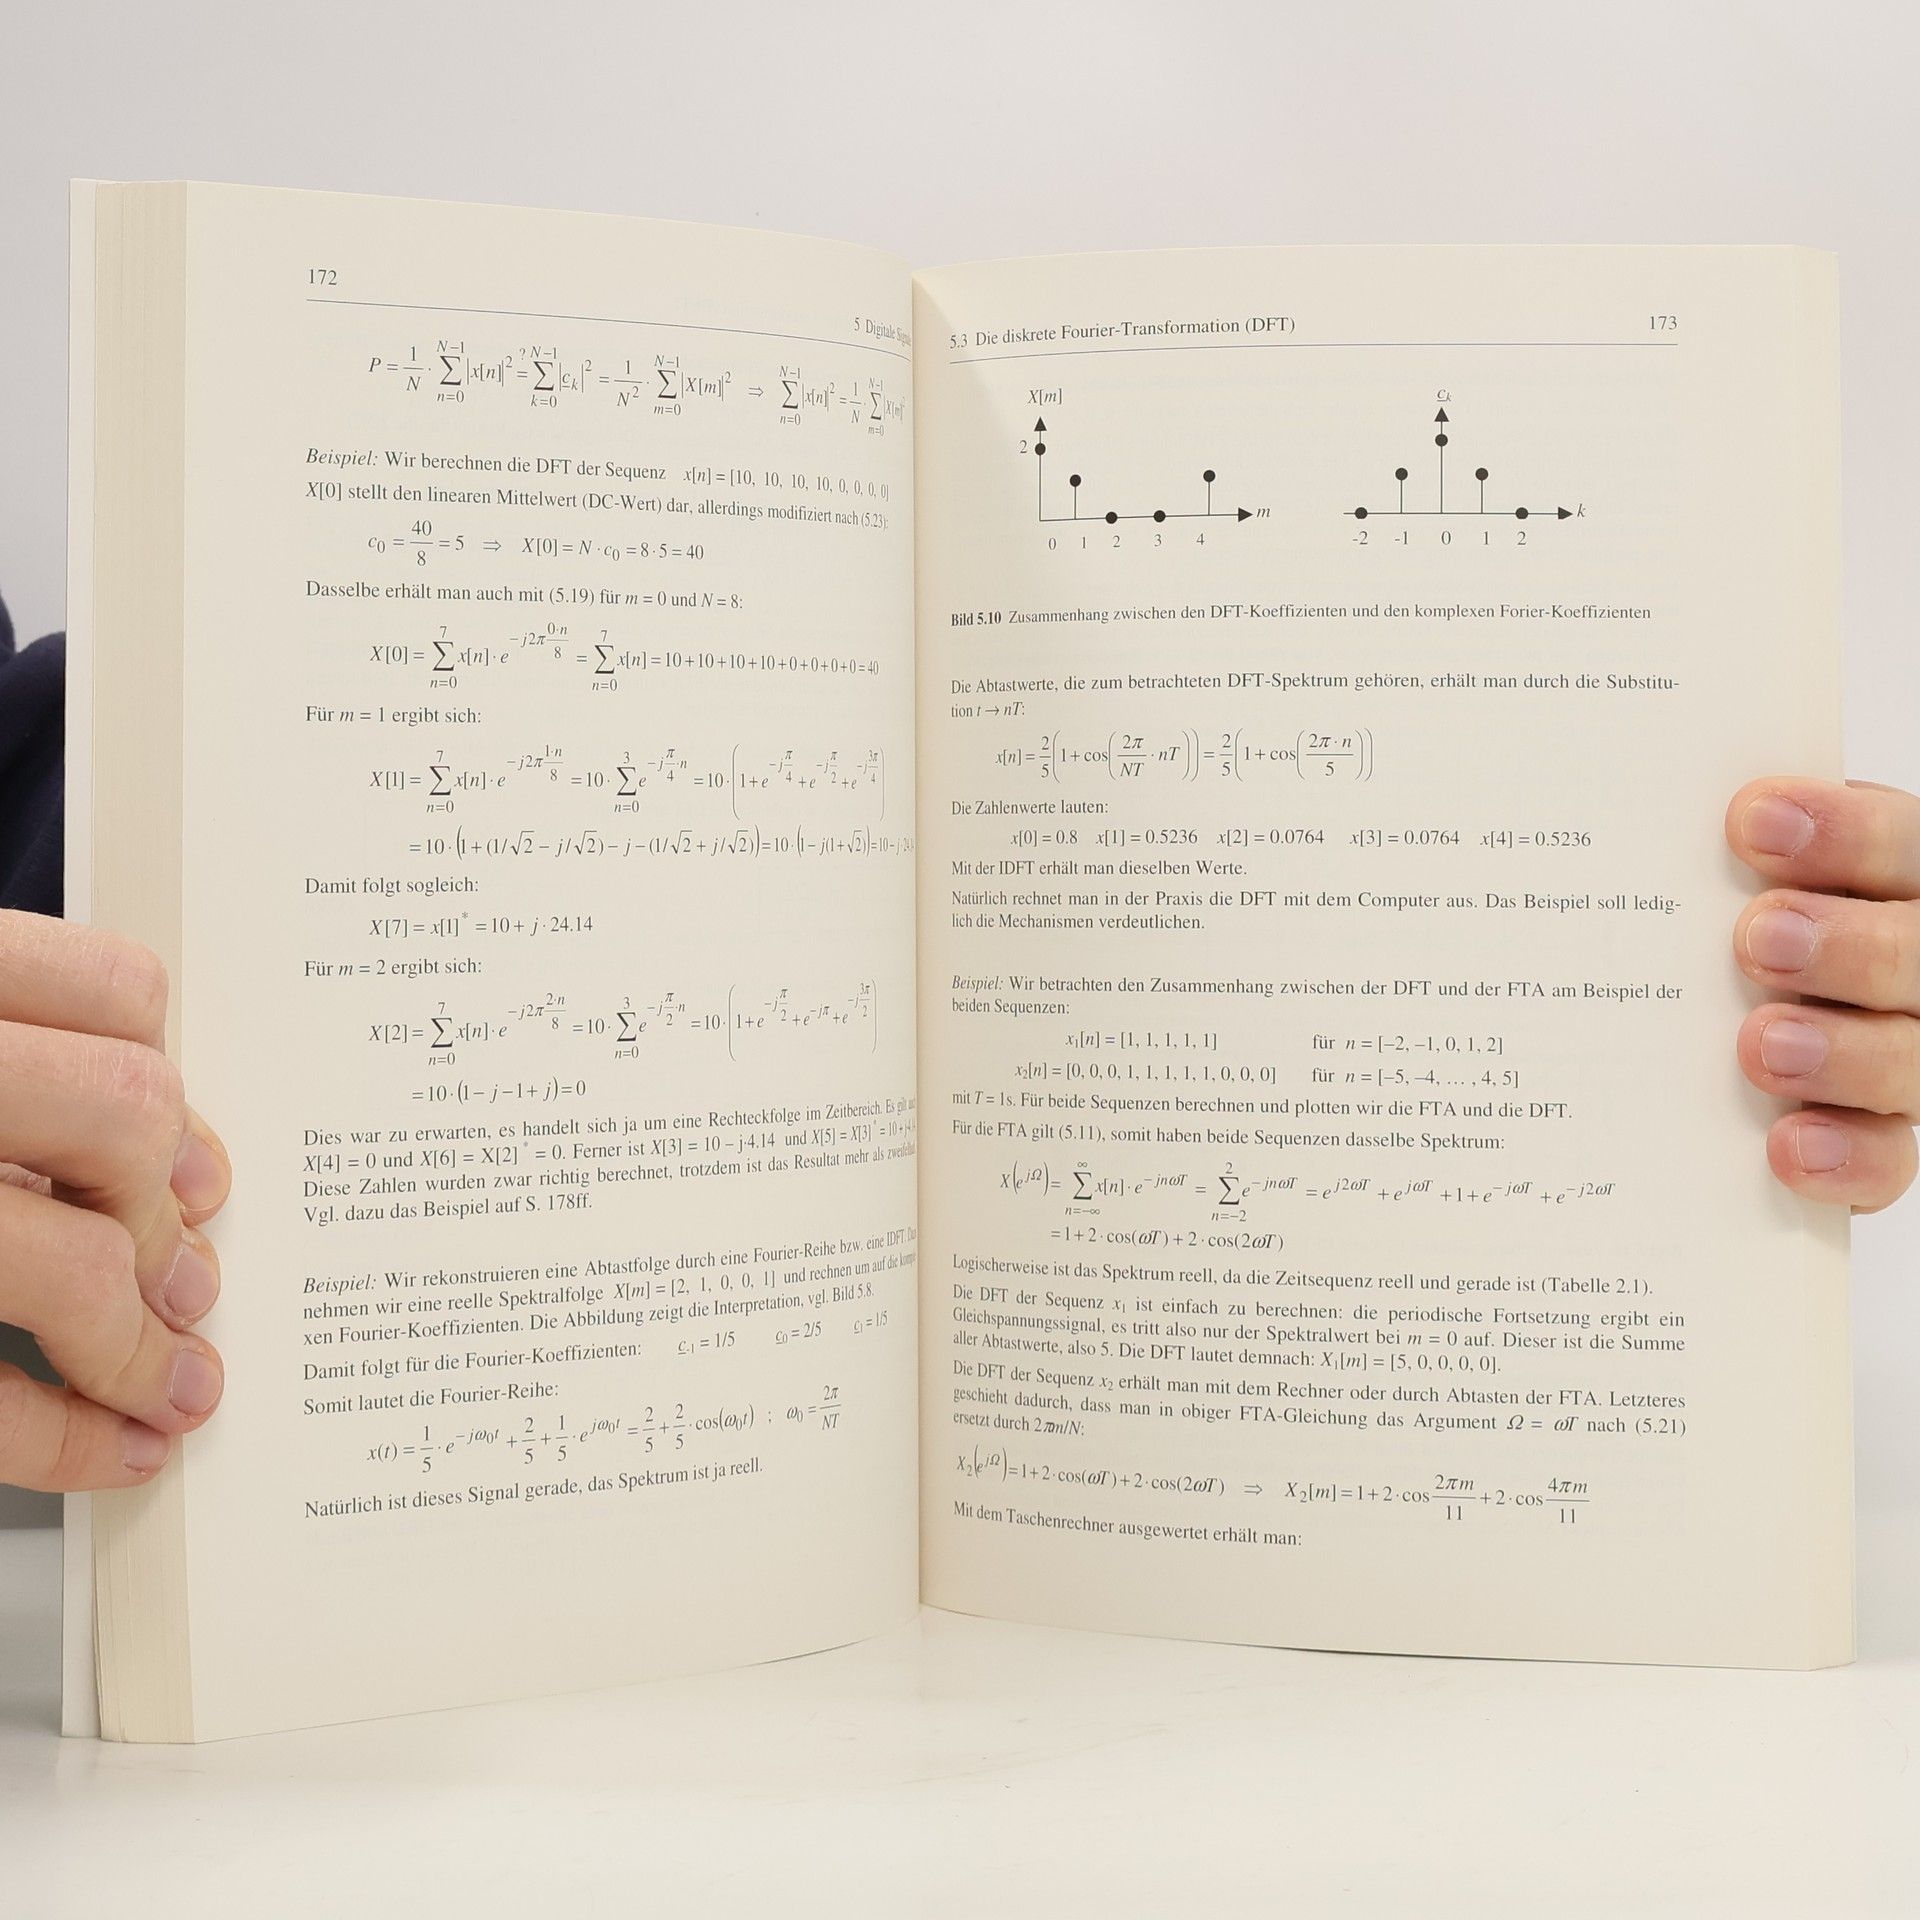 172
5 Digitale
P = 1/N · ∑_{n=0}^{N−1} |x[n]|² =? ∑_{k=0}^{N−1} |c_k|² = 1/N² · ∑_{m=0}^{N−1} |X[m]|² ⇒ ∑_{n=0}^{N−1} |x[n]|² = 1/N · ∑_{m=0}^{N−1} |X[m]|²
Beispiel: Wir berechnen die DFT der Sequenz x[n] = [10, 10, 10, 10, 0, 0, 0, 0]
X[0] stellt den linearen Mittelwert (DC-Wert) dar, allerdings modifiziert nach (5.23):
c₀ = 40/8 = 5 ⇒ X[0] = N · c₀ = 8 · 5 = 40
Dasselbe erhält man auch mit (5.19) für m = 0 und N = 8:
X[0] = ∑_{n=0}^{7} x[n] · e^{−j2π 0·n/8} = ∑_{n=0}^{7} x[n] = 10+10+10+10+0+0+0+0 = 40
Für m = 1 ergibt sich:
X[1] = ∑_{n=0}^{7} x[n] · e^{−j2π 1·n/8} = 10 · ∑_{n=0}^{3} e^{−j π/4 ·n} = 10 · (1 + e^{−j π/4} + e^{−j π/2} + e^{−j 3π/4})
= 10 · (1 + (1/√2 − j/√2) − j − (1/√2 + j/√2)) = 10 · (1 − j(1+√2)) = 10 − j·24.14
Damit folgt sogleich:
X[7] = x[1]* = 10 + j · 24.14
Für m = 2 ergibt sich:
X[2] = ∑_{n=0}^{7} x[n] · e^{−j2π 2·n/8} = 10 · ∑_{n=0}^{3} e^{−j π/2 ·n} = 10 · (1 + e^{−j π/2} + e^{−jπ} + e^{−j 3π/2})
= 10 · (1 − j − 1 + j) = 0
Dies war zu erwarten, es handelt sich ja um eine Rechteckfolge im Zeitbereich. Es gilt
X[4] = 0 und X[6] = X[2]* = 0. Ferner ist X[3] = 10 − j·4.14 und X[5] = X[3]* = 10 + j·4.14
Diese Zahlen wurden zwar richtig berechnet, trotzdem ist das Resultat mehr als zweifelhaft
Vgl. dazu das Beispiel auf S. 178ff.
Beispiel: Wir rekonstruieren eine Abtastfolge durch eine Fourier-Reihe bzw. eine IDFT.
nehmen wir eine reelle Spektralfolge X[m] = [2, 1, 0, 0, 1] und rechnen um auf die
xen Fourier-Koeffizienten. Die Abbildung zeigt die Interpretation, vgl. Bild 5.8.
Damit folgt für die Fourier-Koeffizienten: c₋₁ = 1/5 c₀ = 2/5 c₁ = 1/5
Somit lautet die Fourier-Reihe:
x(t) = 1/5 · e^{−jω₀t} + 2/5 + 1/5 · e^{jω₀t} = 2/5 + 2/5 · cos(ω₀t) ; ω₀ = 2π/NT
Natürlich ist dieses Signal gerade, das Spektrum ist ja reell.
5.3 Die diskrete Fourier-Transformation (DFT) 173
X[m] c_k
2
m k
0 1 2 3 4 -2 -1 0 1 2
Bild 5.10 Zusammenhang zwischen den DFT-Koeffizienten und den komplexen Forier-Koeffizienten
Die Abtastwerte, die zum betrachteten DFT-Spektrum gehören, erhält man durch die Substitu-
tion t → nT:
x[n] = 2/5 (1 + cos(2π/NT · nT)) = 2/5 (1 + cos(2π · n/5))
Die Zahlenwerte lauten:
x[0] = 0.8 x[1] = 0.5236 x[2] = 0.0764 x[3] = 0.0764 x[4] = 0.5236
Mit der IDFT erhält man dieselben Werte.
Natürlich rechnet man in der Praxis die DFT mit dem Computer aus. Das Beispiel soll ledig-
lich die Mechanismen verdeutlichen.
Beispiel: Wir betrachten den Zusammenhang zwischen der DFT und der FTA am Beispiel der
beiden Sequenzen:
x₁[n] = [1, 1, 1, 1, 1] für n = [−2, −1, 0, 1, 2]
x₂[n] = [0, 0, 0, 1, 1, 1, 1, 1, 0, 0, 0] für n = [−5, −4, … , 4, 5]
mit T = 1s. Für beide Sequenzen berechnen und plotten wir die FTA und die DFT.
Für die FTA gilt (5.11), somit haben beide Sequenzen dasselbe Spektrum:
X(e^{jΩ}) = ∑_{n=−∞}^{∞} x[n] · e^{−jnωT} = ∑_{n=−2}^{2} e^{−jnωT} = e^{j2ωT} + e^{jωT} + 1 + e^{−jωT} + e^{−j2ωT}
= 1 + 2 · cos(ωT) + 2 · cos(2ωT)
Logischerweise ist das Spektrum reell, da die Zeitsequenz reell und gerade ist (Tabelle 2.1).
Die DFT der Sequenz x₁ ist einfach zu berechnen: die periodische Fortsetzung ergibt ein
Gleichspannungssignal, es tritt also nur der Spektralwert bei m = 0 auf. Dieser ist die Summe
aller Abtastwerte, also 5. Die DFT lautet demnach: X₁[m] = [5, 0, 0, 0, 0].
Die DFT der Sequenz x₂ erhält man mit dem Rechner oder durch Abtasten der FTA. Letzteres
geschieht dadurch, dass man in obiger FTA-Gleichung das Argument Ω = ωT nach (5.21)
ersetzt durch 2πm/N:
X₂(e^{jΩ}) = 1 + 2 · cos(ωT) + 2 · cos(2ωT) ⇒ X₂[m] = 1 + 2 · cos 2πm/11 + 2 · cos 4πm/11
Mit dem Taschenrechner ausgewertet erhält man: